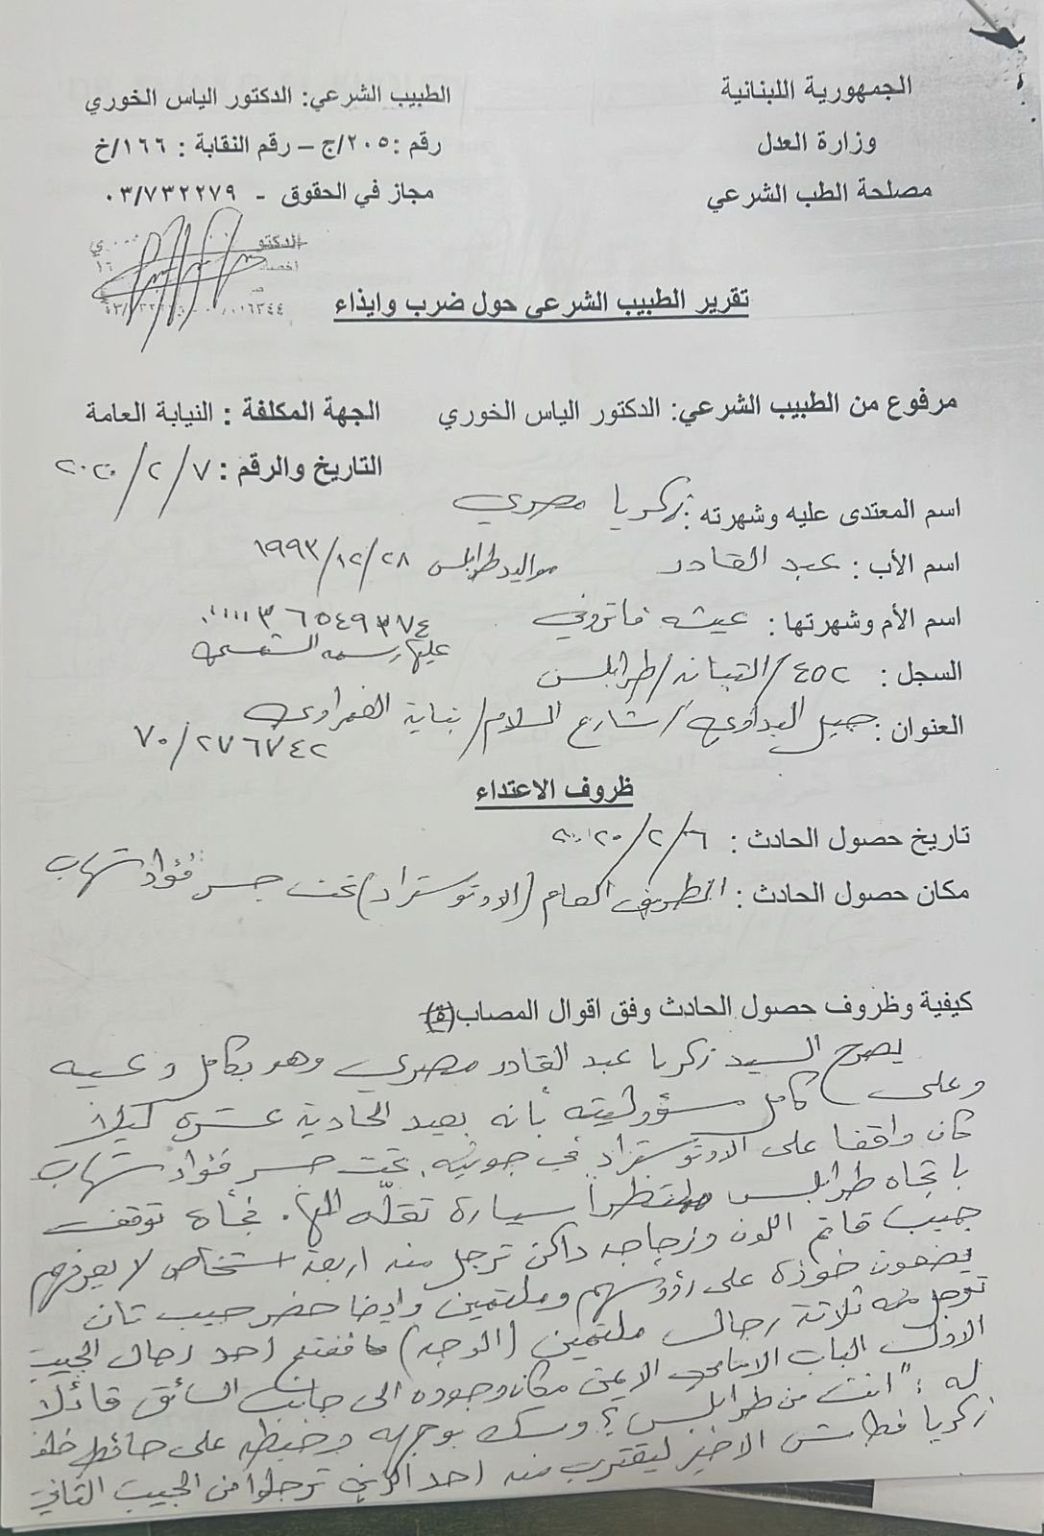 الجمهورية اللبنانية
وزارة العدل
مصلحة الطب الشرعي
الطبيب الشرعي: الدكتور الياس الخوري
رقم :٢٠٥/ج – رقم النقابة : ١٦٦/خ
مجاز في الحقوق - ٠٣/٧٣٢٢٧٩
الدكتو
تقرير الطبيب الشرعي حول ضرب وايذاء
مرفوع من الطبيب الشرعي: الدكتور الياس الخوري الجهة المكلفة : النيابة العامة
التاريخ والرقم : ٧/٢/٢٠٢٠
اسم المعتدى عليه وشهرته : زكريا مصري
اسم الأب : عبد القادر مواليد طرابلس ٢٨/١٢/١٩٩٣
اسم الأم وشهرتها : عيشه
السجل : ٤٥٢/التبانه/طرابلس
العنوان : جبل البداوي/شارع السلام/بناية الضراوي
٧٠/٢٧٦٧٤٢
ظروف الاعتداء
تاريخ حصول الحادث : ٦/٢/٢٠٢٠
مكان حصول الحادث : الطريق العام (الاوتوستراد) تحت جسر فؤاد شهاب
كيفية وظروف حصول الحادث وفق اقوال المصاب(ة)
يصرح السيد زكريا عبد القادر مصري وهو بكامل وعيه
وعلى كامل مسؤوليته بأنه بعيد الحادية عشرة ليلا
كان واقفا على الاوتوستراد في جونيه. تحت جسر فؤاد شهاب
باتجاه طرابلس منتظرا سيارة تقلّه اليها. فجأة توقفت
جيب قاتم اللون وزجاجه داكن ترجل منه اربعة اشخاص لا يعرفهم
يضعون خوذة على رؤوسهم وملثمين وايضا حضر جيب ثان
ترجل منه ثلاثة رجال ملثمين (الوجه) ففتح احد رجال الجيب
الاول الباب الامامي الايمن مكان وجوده الى جانب السائق قائلا
له : "انت من طرابلس؟ ومسك بوجهه وخبطه على حائط خلف
زكريا فطاش الاخير ليقترب منه احد الذين ترجلوا من الجيب الثاني